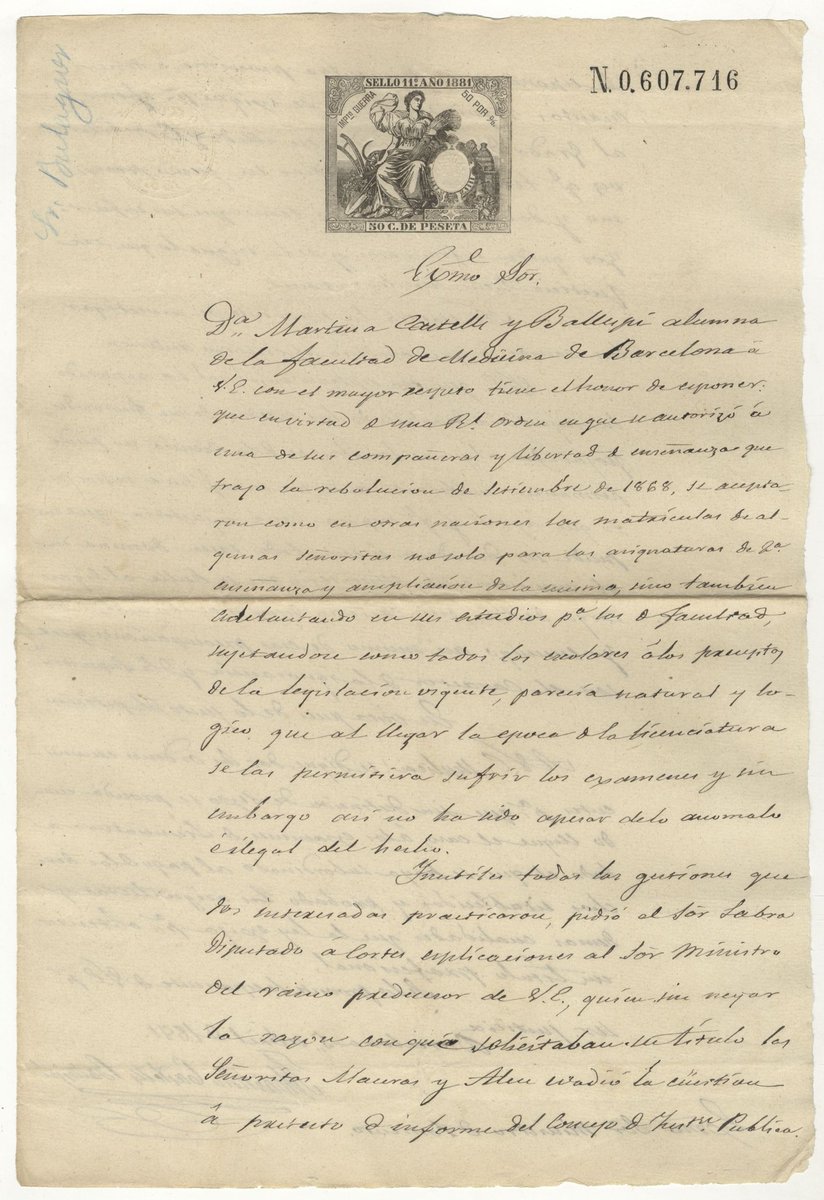 SELLO 11º AÑO 1881
IMPTO GUERRA
50 POR %
50 C. DE PESETA
N.0.607.716
Exmo Sor.
Da. Martina Castells y Ballespi alumna
de la facultad de Medicina de Barcelona á
V.E. con el mayor respeto tiene el honor de esponer:
que en virtud d una Rl. orden en que se autorizó á
una de sus compañeras y libertad d enseñanza que
trajo la rebolucion de setiembre de 1868, se acepta-
ron como en otras naciones las matriculas de al-
gunas señoritas no solo para las asignaturas de 2a.
enseñanza y ampliacion de la misma, sino tambien
adelantando en sus estudios pa. las d facultad,
sujetandose como todos los escolares á los preceptos
de la legislacion vigente, parecia natural y lo-
gico que al llegar la epoca d la licenciatura
se las permitiera sufrir los examenes y sin
embargo asi no ha sido apesar de lo anomalo
é ilegal del hecho.
Inutiles todas las gestiones que
las interesadas practicaron, pidió el Sor Labra
Diputado á Cortes esplicaciones al Sor Ministro
del ramo predecesor de V.E., quien sin negar
la razon con que solicitaban su titulo las
Señoritas Maseras y Aleu evadió la cüestion
á pretesto d informe del Consejo d Instn. Publica.